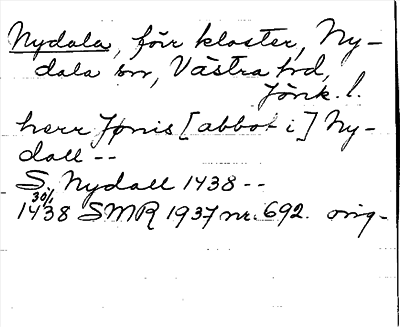 Nydala, förr kloster, Ny-
dala sn, Västra hd,
Jönk. l.
herr Jønis [abbot i] Ny-
dall --
S. Nydall 1438 --
30/1
1438 SMR 1937 nr. 692. orig-